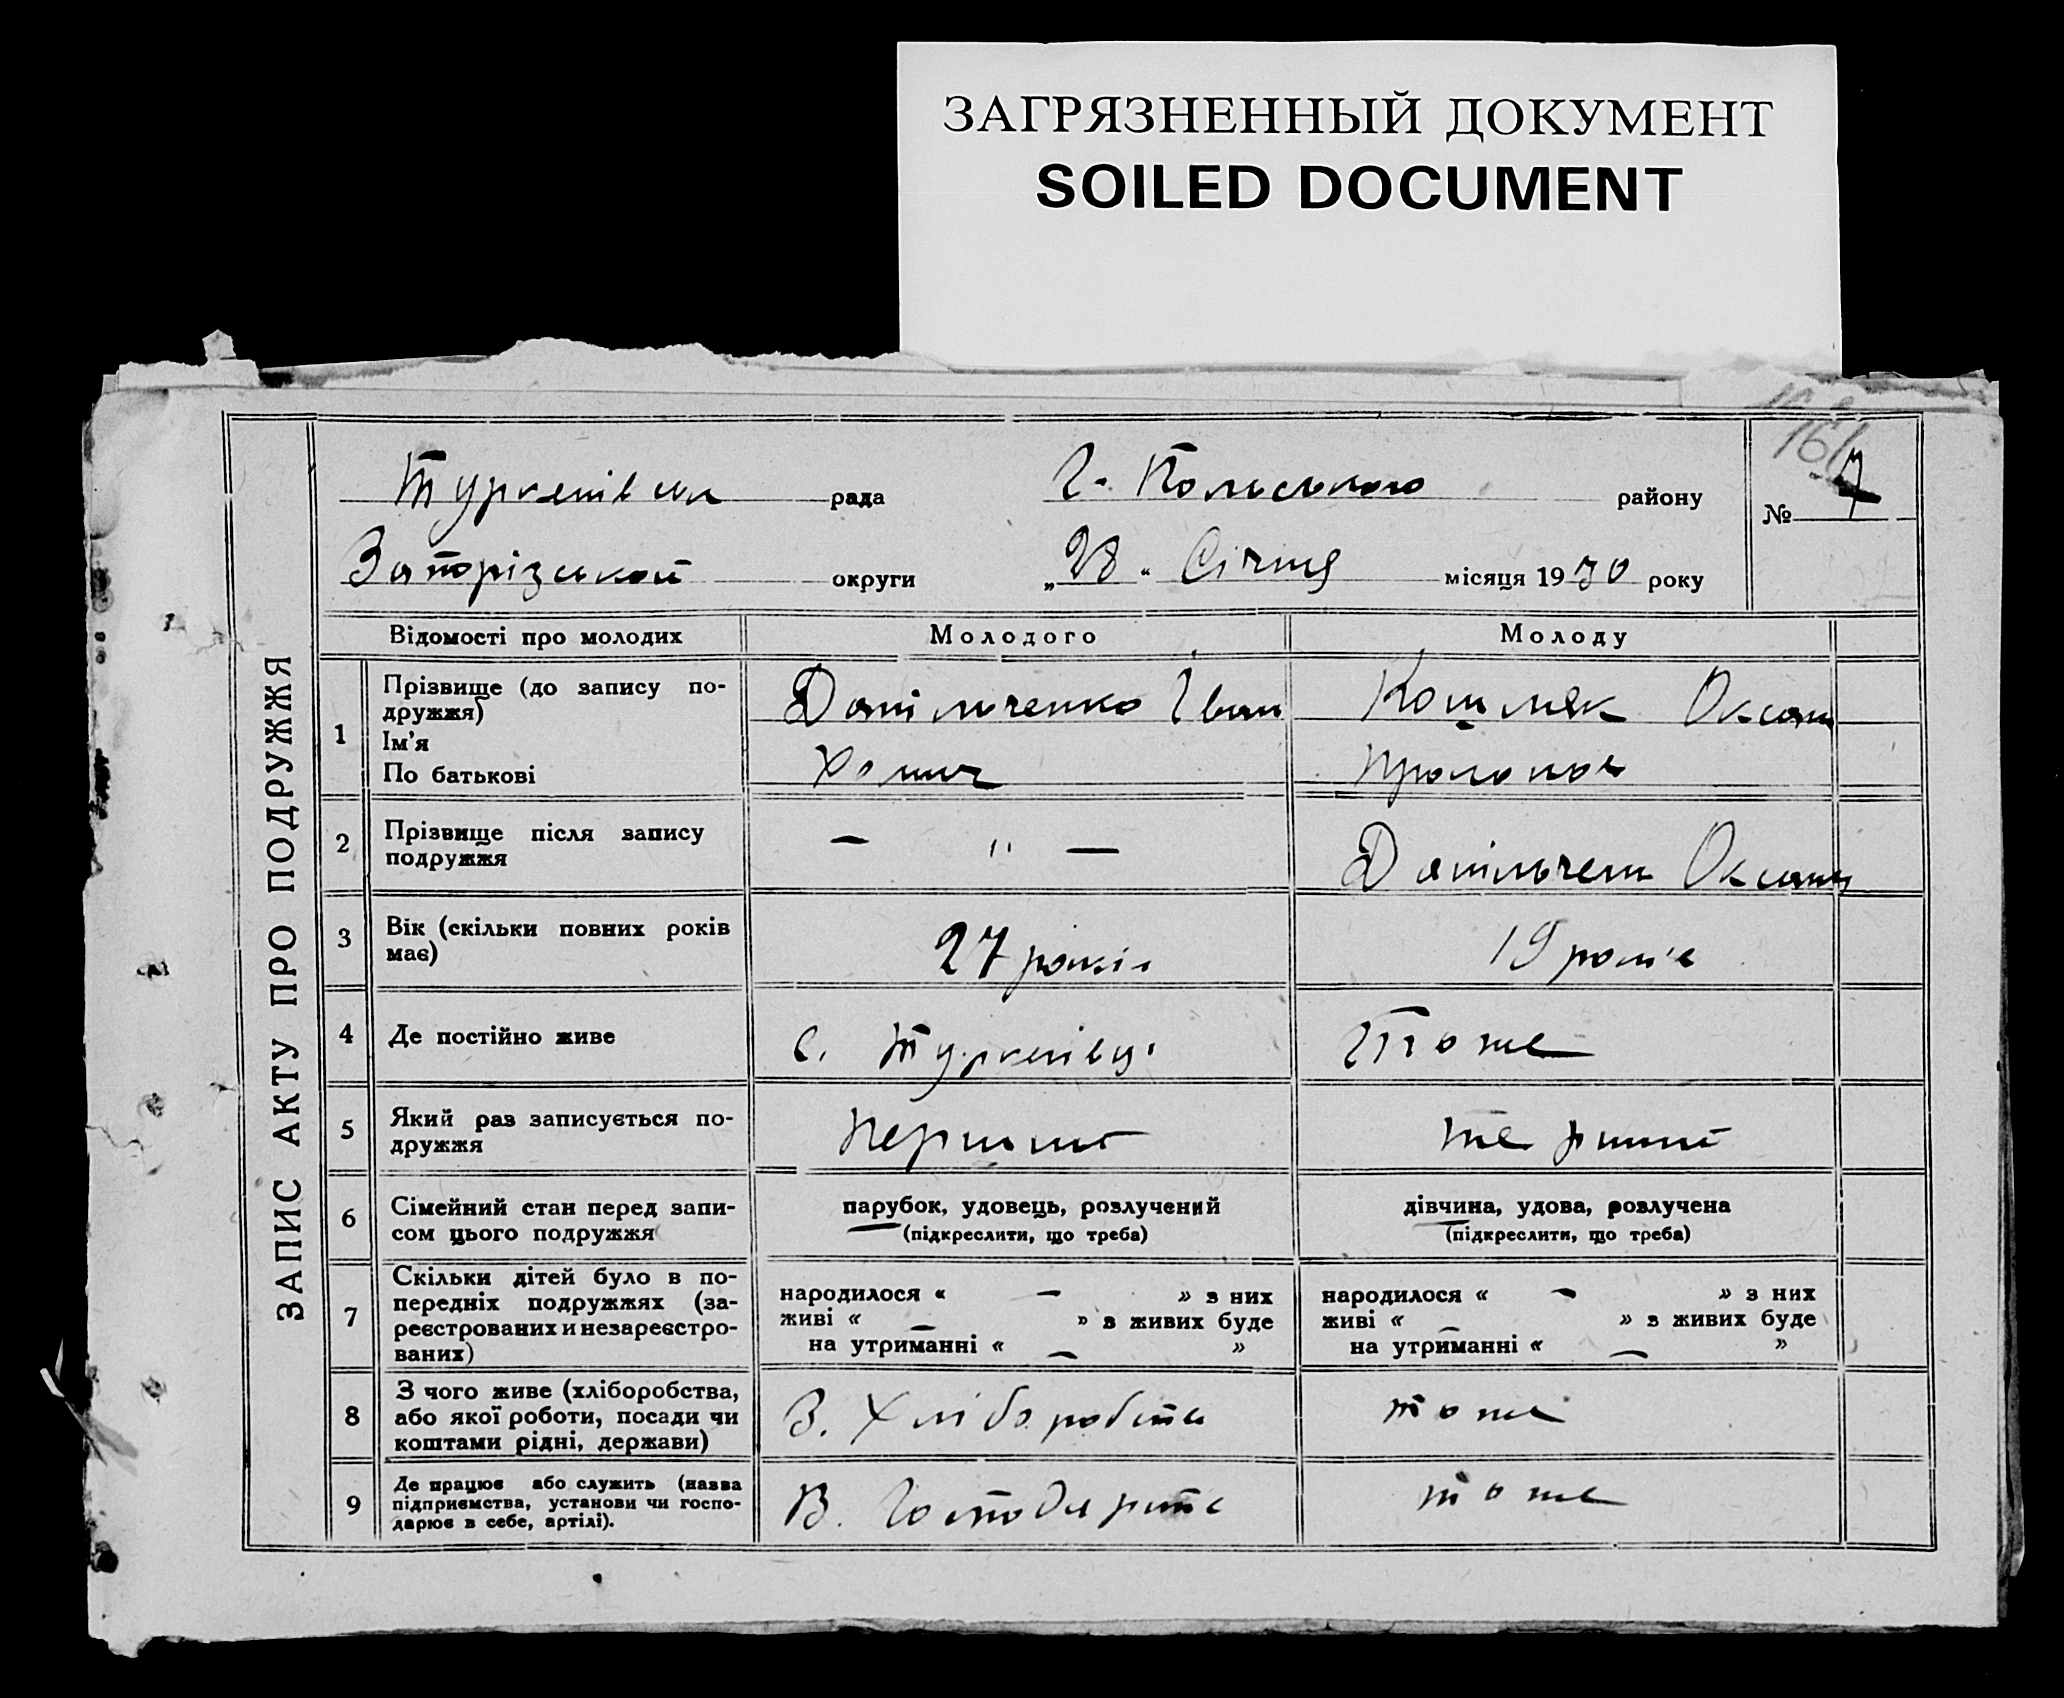 ЗАГРЯЗНЕННЫЙ ДОКУМЕНТ
SOILED DOCUMENT
ЗАПИС АКТУ ПРО ПОДРУЖЖЯ
рада
Г. Польського району
№ 7
Запорізької округи
„28“ Січня місяця 1930 року
Відомості про молодих
Молодого
Молоду
1
Прізвище (до запису по-
дружжя)
Ім’я
По батькові
Данільченко Іван
Хомич
Оксана
2
Прізвище після запису
подружжя
— " —
Данільченк Оксана
3
Вік (скільки повних років
має)
27 років
19 років
4
Де постійно живе
с. Туркенівці
Тоже
5
Який раз записується по-
дружжя
Перший
Перший
6
Сімейний стан перед запи-
сом цього подружжя
парубок, удовець, розлучений
(підкреслити, що треба)
дівчина, удова, розлучена
(підкреслити, що треба)
7
Скільки дітей було в по-
передніх подружжях (за-
реєстрованих и незареєстро-
ваних)
народилося « — » з них
живі « — » з живих буде
на утриманні « — »
народилося « — » з них
живі « — » з живих буде
на утриманні « — »
8
З чого живе (хліборобства,
або якої роботи, посади чи
коштами рідні, держави)
З. Хліборобства
тоже
9
Де працює або служить (назва
підприємства, установи чи госпо-
дарює в себе, артілі).
В. Господарстві
тоже